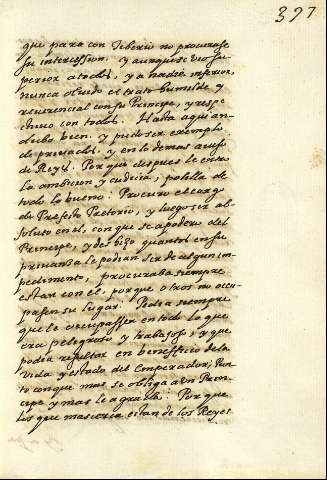 397
que para con Tiberio no procurasse
su intercession. y aunque se vio su-
perior a todos, y a nadie inferior,
nunca olvido el trato humilde y
reverencial con su Principe, y respe-
ctuoso con todos. Hasta aqui an-
dubo bien. y pudo ser exemplo
de privados. y en lo demas aviso
de Reyes. Porque despues le entro
la ambicion y cudicia, polilla de
todo lo bueno. Procuro el cargo
de Prefecto Pretorio, y luego ser ab-
soluto en el, con que se apodero del
Principe, y deshizo quantos en su
privanza le podian ser de algun im-
pedimento, procuraba siempre
estar con el, porque otros no ocu-
passen su lugar. Pedia siempre
que le ocupassen en todo lo que
era peligroso y trabajoso, y que
podia resultar en beneficio de la
vida y estado del Emperador, Pun-
to con que mas se obliga a un Prin-
cipe y mas le agrada. Porque
los que mas cerca estan de los Reyes